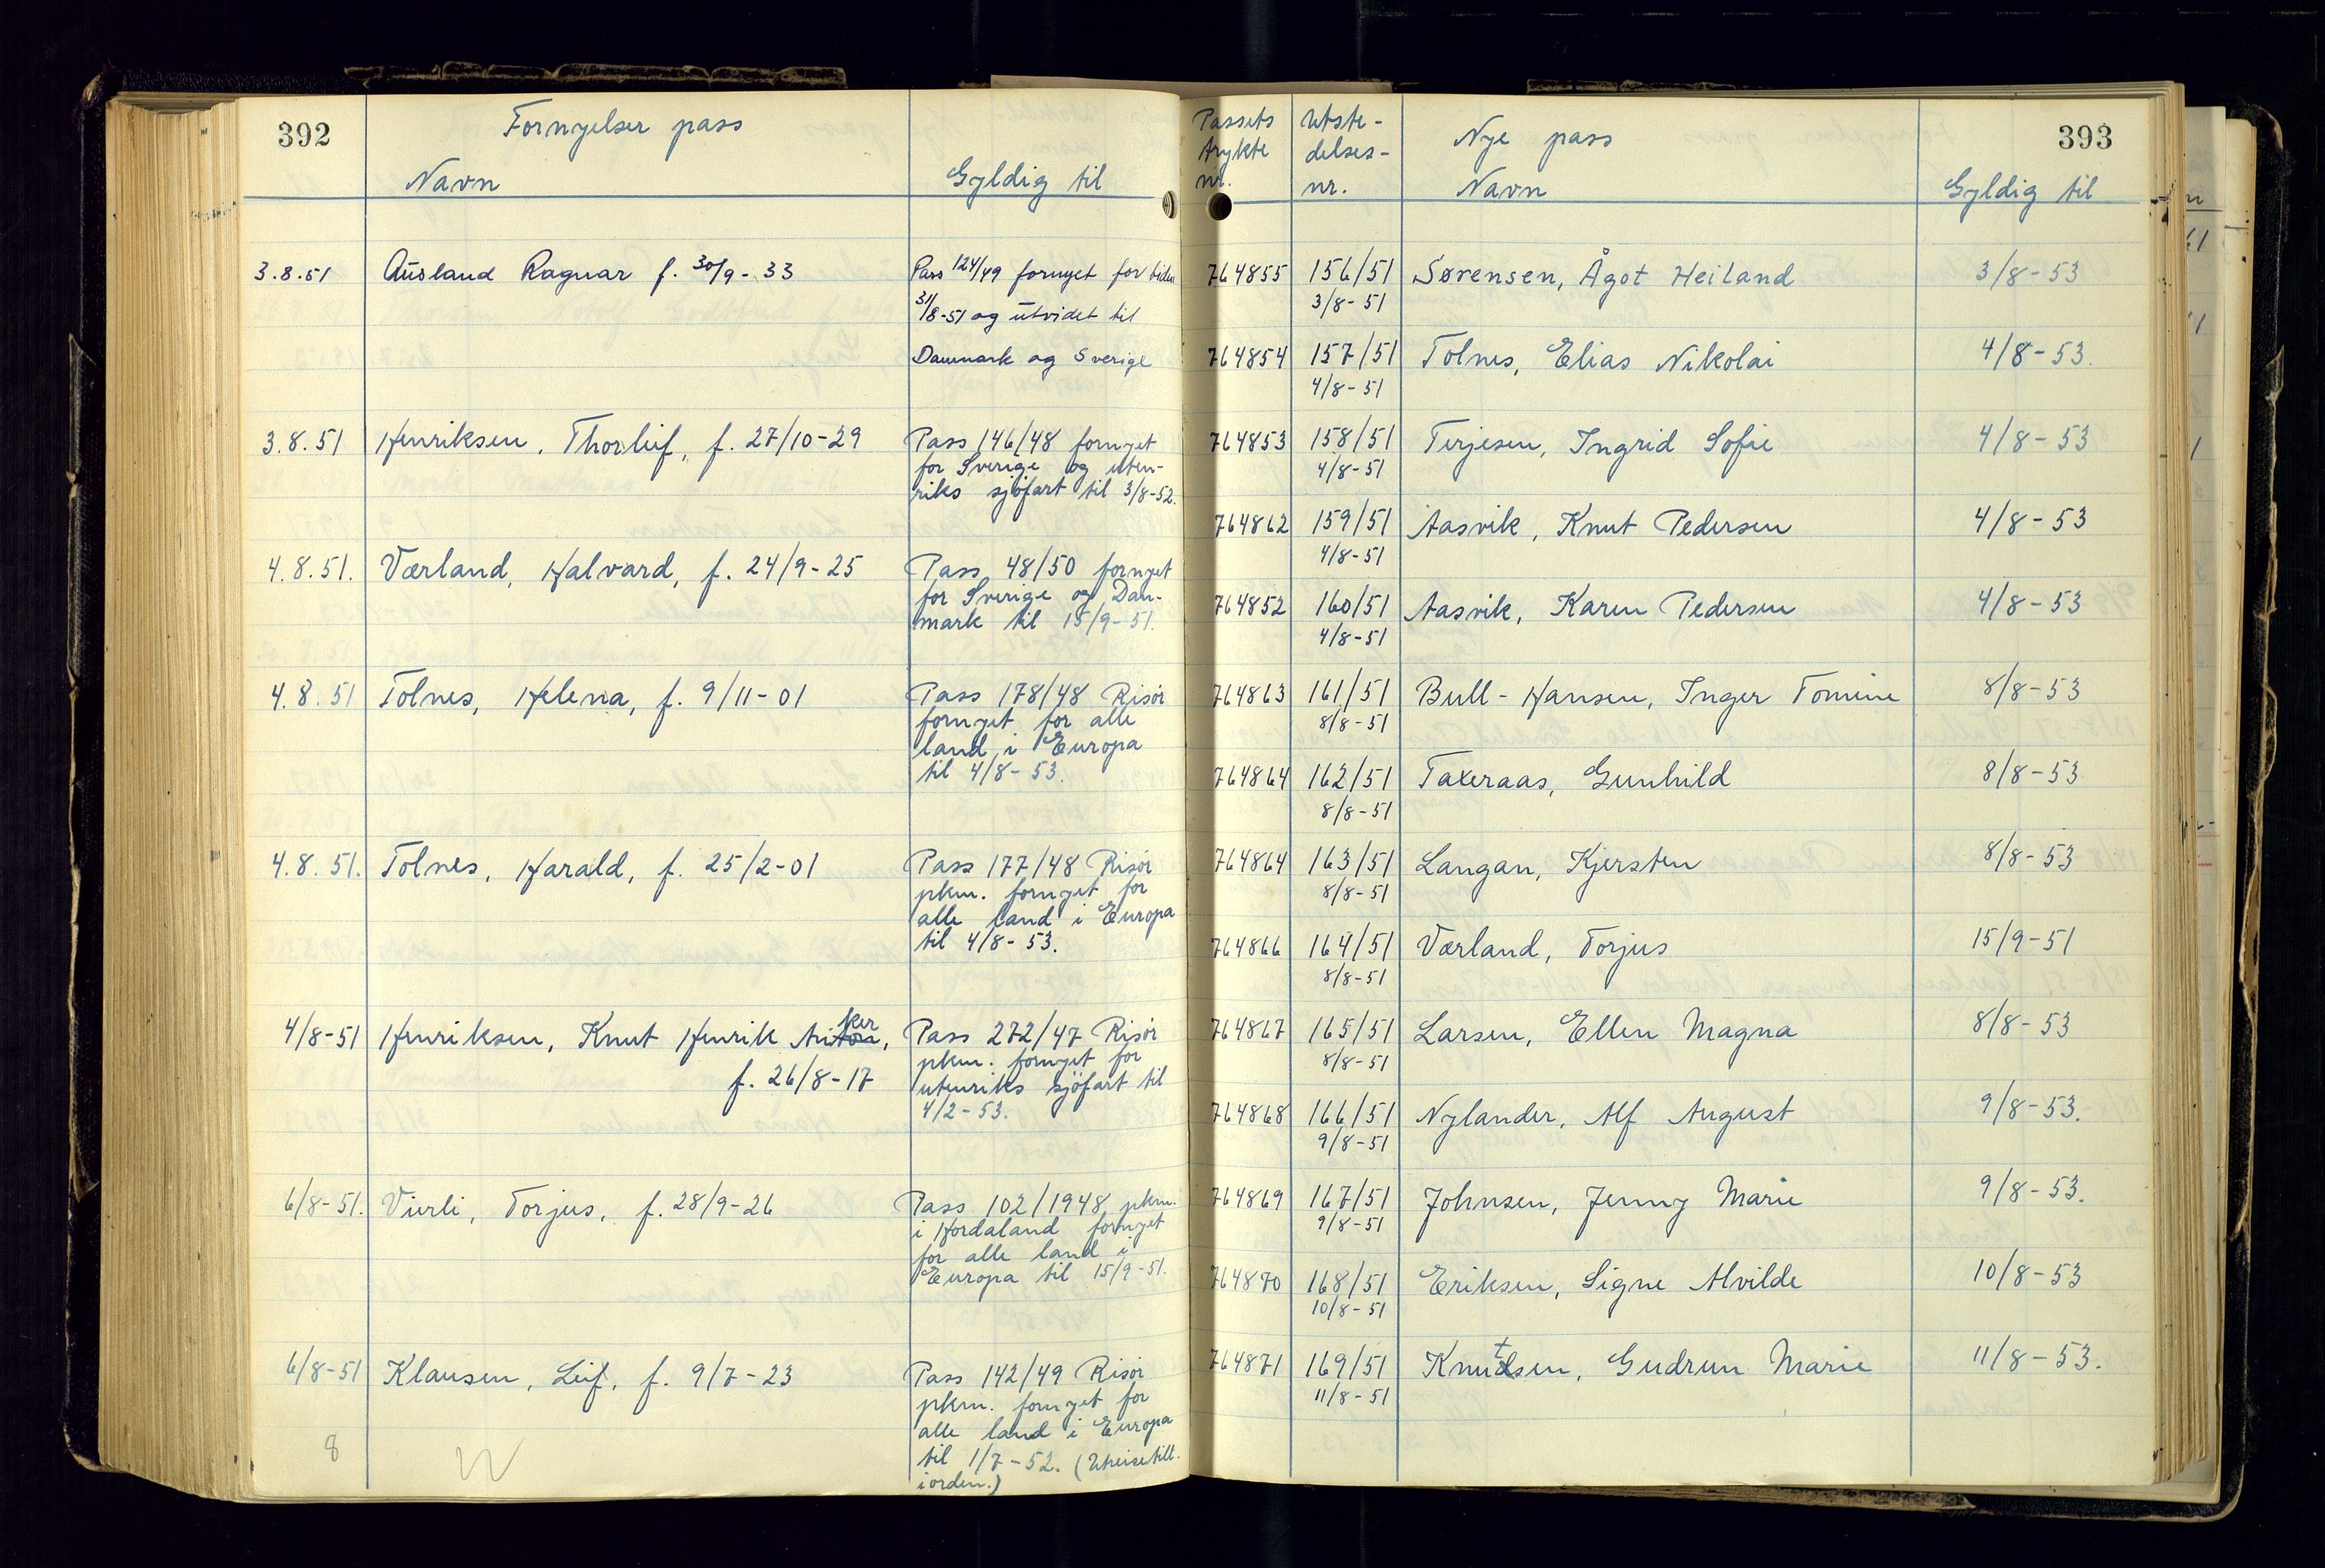 392
Fornyelser pass
Navn
Gyldig til
3.8.51 Ausland Ragnar f. 30/9-33 Pass 124/49 fornyet for tiden
31/8-51 og utvidet til
Danmark og Sverige
3.8.51 Henriksen, Thorleif, f. 27/10-29 Pass 146/48 fornyet
for Sverige og uten-
riks sjøfart til 3/8-52.
4.8.51. Værland, Halvard, f. 24/9-25 Pass 48/50 fornyet
for Sverige og Dan-
mark til 15/9-51.
4.8.51 Tolnes, Helena, f. 9/11-01 Pass 178/48 Risør
fornyet for alle
land i Europa
til 4/8-53.
4.8.51. Tolnes, Harald, f. 25/2-01 Pass 177/48 Risør
pkm. fornyet for
alle land i Europa
til 4/8-53.
ker
4/8-51 Henriksen, Knut Henrik Anton, Pass 272/47 Risør
pkm. fornyet for
f. 26/8-17 utenriks sjøfart til
4/2-53.
6/8-51. Vierli, Torjus, f. 28/9-26 Pass 102/1948, pkm.
i Hordaland fornyet
for alle land i
Europa til 15/9-51.
6/8-51 Klausen, Leif, f. 9/7-23 Pass 142/49 Risør
pkm. fornyet for
alle land i Europa
til 1/7-52. (Utreisetill.
i orden.)
8
393
Passets
trykte
nr.
Utste-
delses-
nr.
Nye pass
Navn
Gyldig til
764855 156/51 Sørensen, Ågot Heiland 3/8-53
3/8-51
764854 157/51 Tolnes, Elias Nikolai 4/8-53.
4/8-51
764853 158/51 Terjesen, Ingrid Sofie 4/8-53
4/8-51
764862 159/51 Aasvik, Knut Pedersen 4/8-53
4/8-51
764852 160/51 Aasvik, Karen Pedersen 4/8-53
4/8-51
764863 161/51 Bull-Hansen, Inger Tomine 8/8-53
8/8-51
764864 162/51 Taxeraas, Gunhild 8/8-53
8/8-51
764864 163/51 Langan, Kjersten 8/8-53
8/8-51
764866 164/51 Værland, Torjus 15/9-51
8/8-51
764867 165/51 Larsen, Ellen Magna 8/8-53
8/8-51
764868 166/51 Nylander, Alf August 9/8-53.
9/8-51
764869 167/51 Johnsen, Jenny Marie 9/8-53.
9/8-51
764870 168/51 Eriksen, Signe Alvilde 10/8-53
10/8-51
764871 169/51 Knutsen, Gudrun Marie 11/8-53.
11/8-51